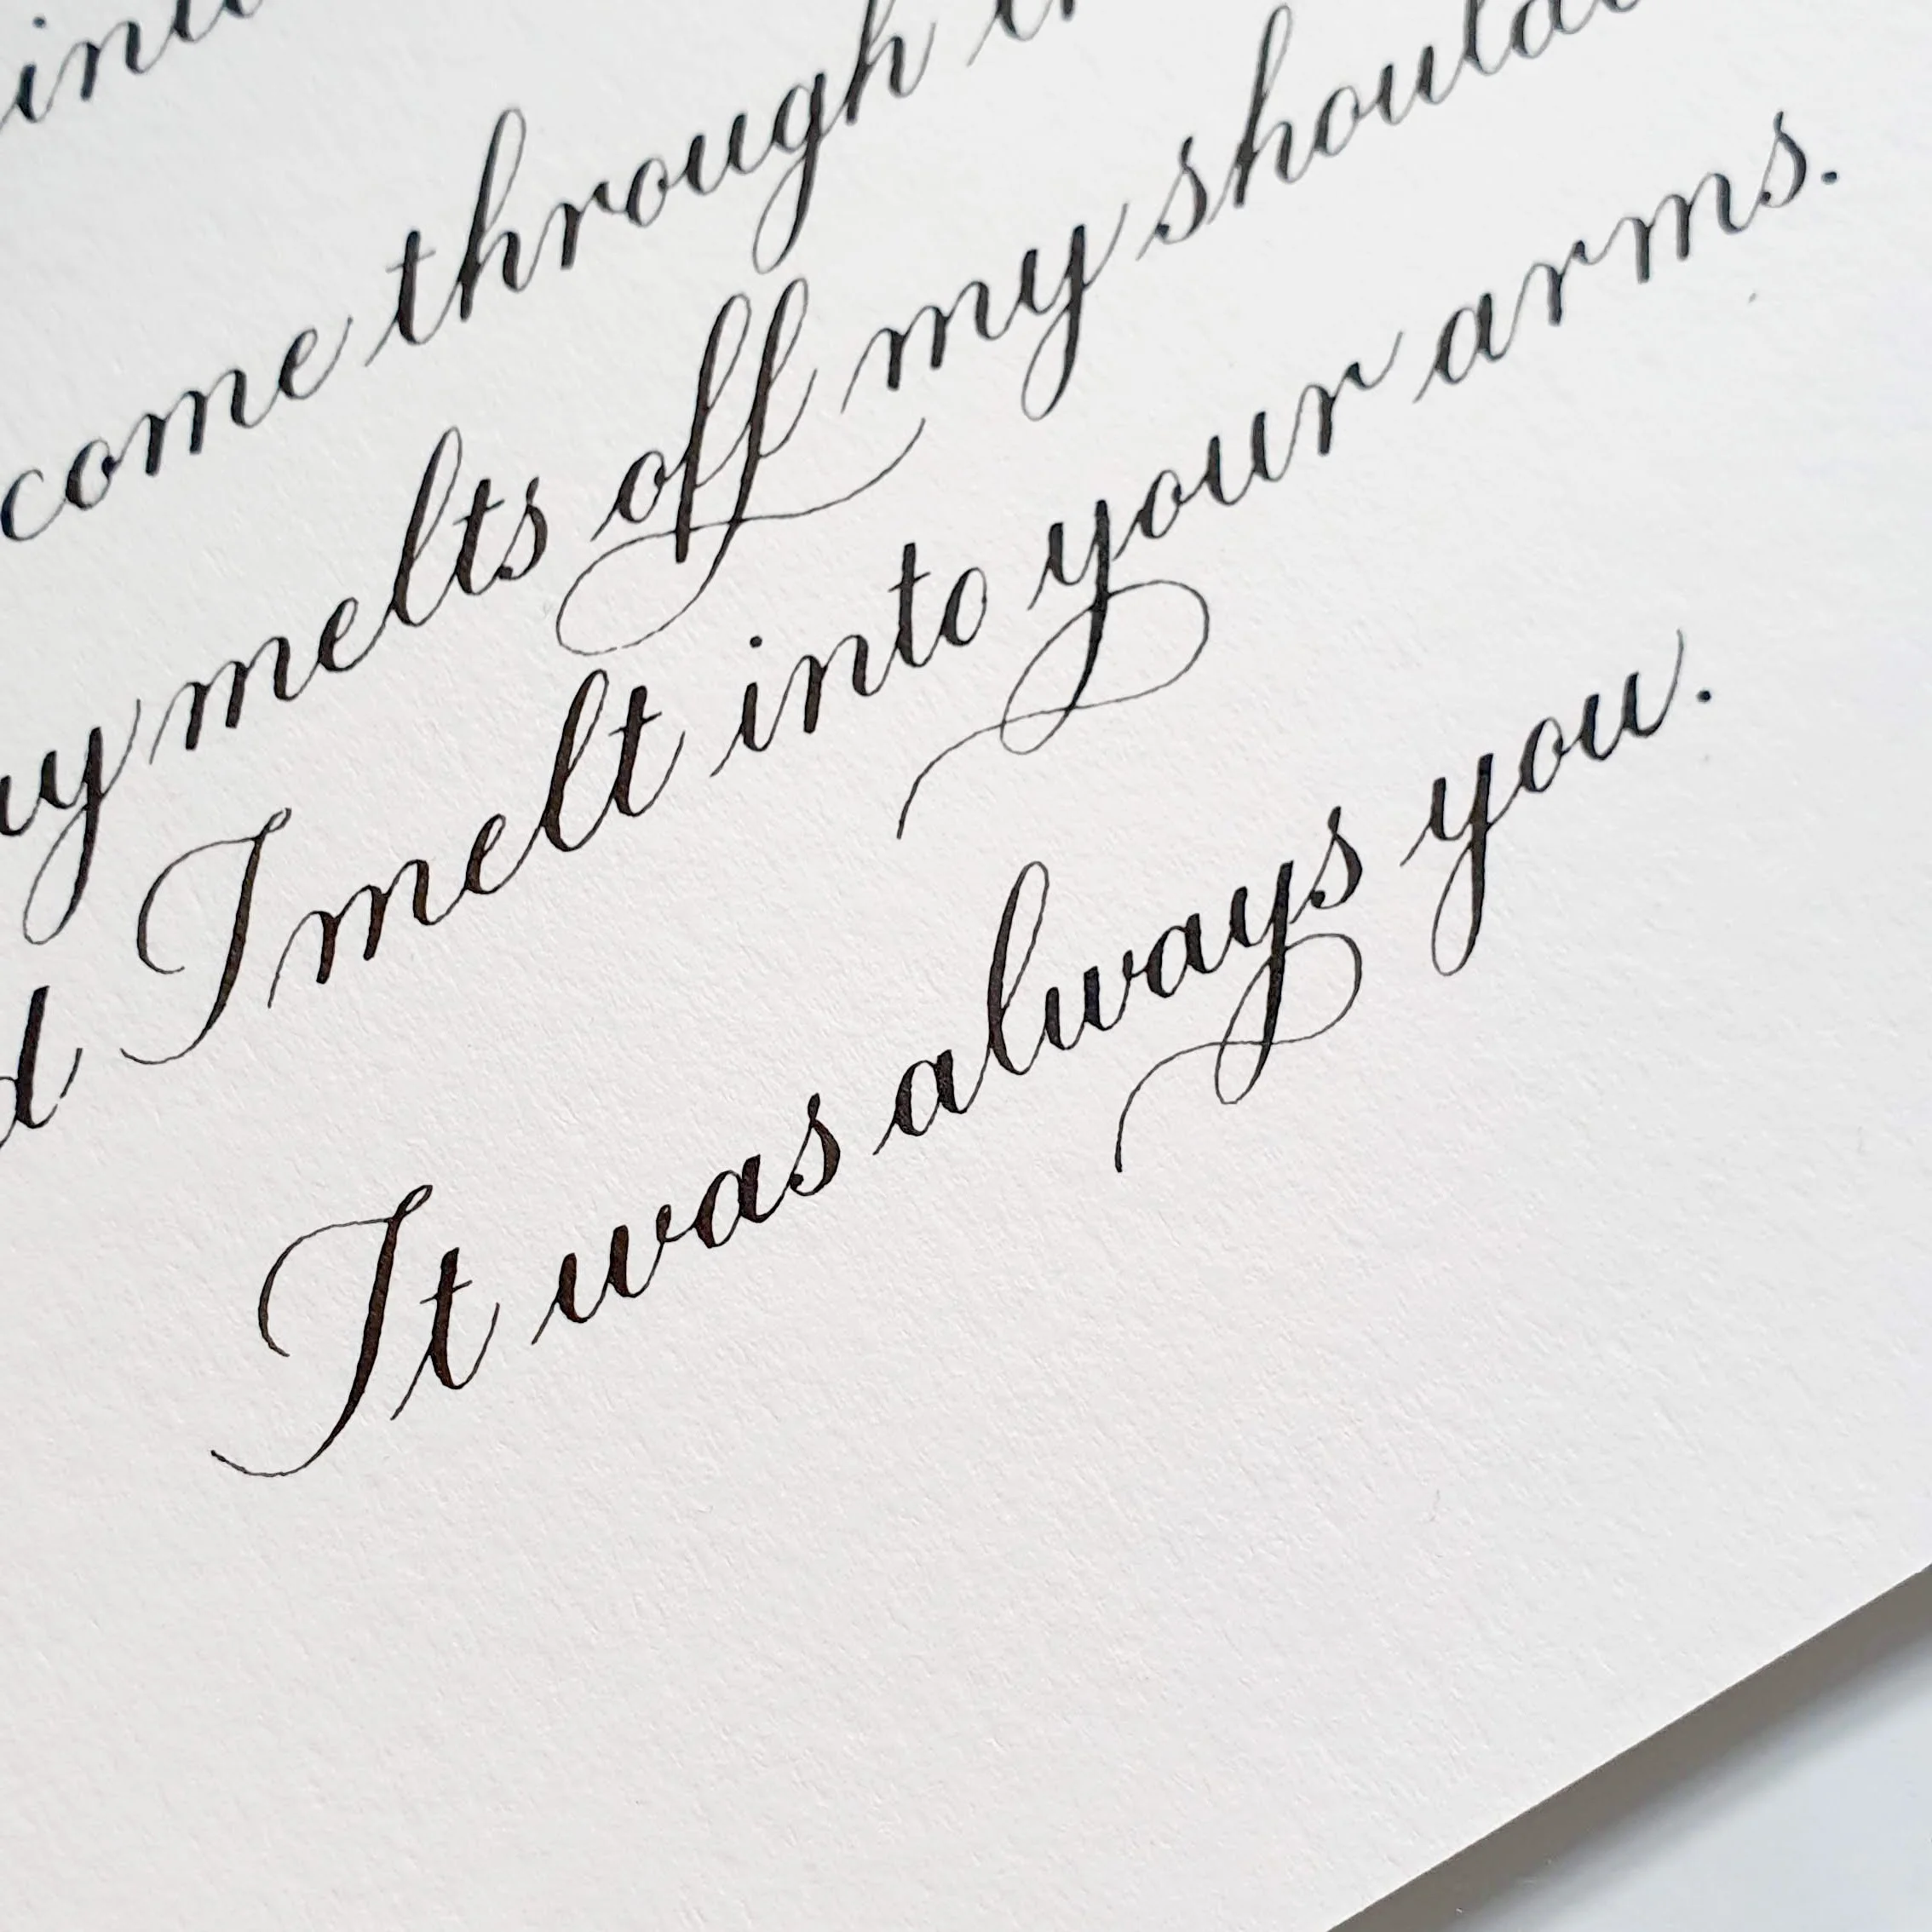 come through
melts off my
I melt into your arms.
It was always you.